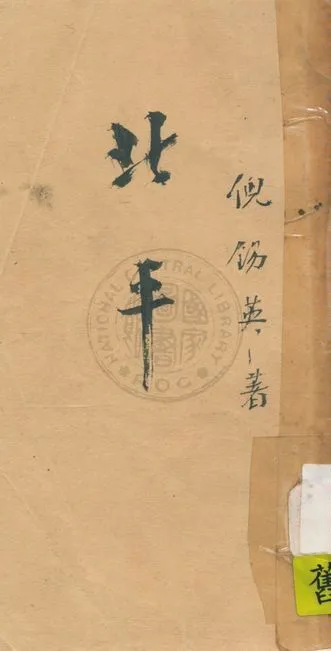 北平
倪錫英著
NATIONAL CENTRAL LIBRARY
ROC
國家圖書
舊